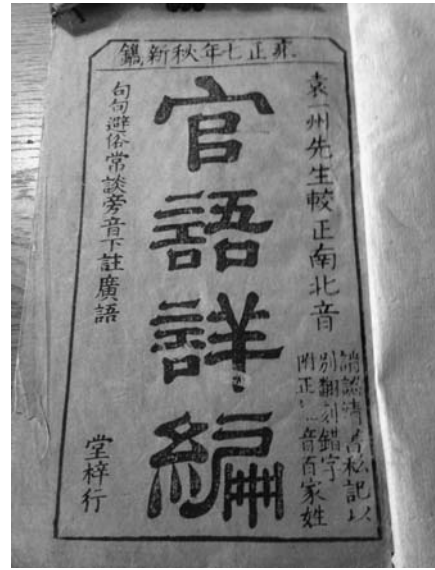 雍正七年秋新鐫
袁一州先生較正南北音
認私記以
別翻刻錯字
附正音百家姓
官語詳編
句句避俗常談旁音下註廣語
堂梓行